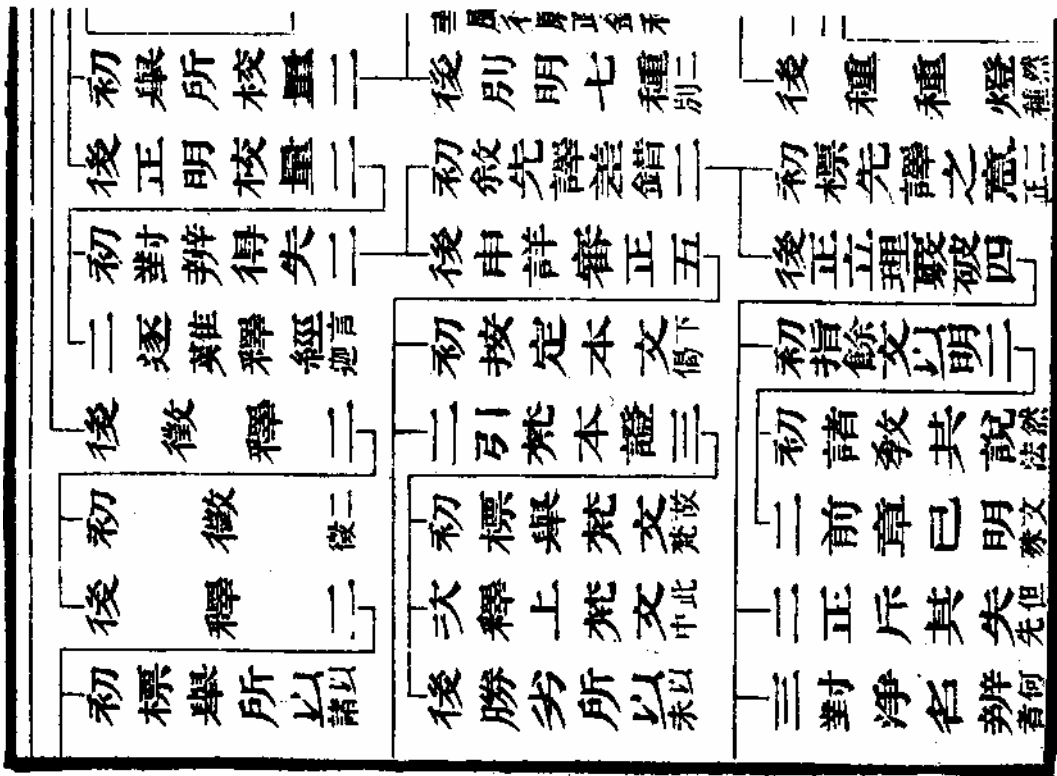 初舉所校量二
後正明校量二
初對辨得失二
二逐難釋經迦言
後徵釋二
初徵徵二
後釋二
初標舉所以諸以
後別明七種別二
初敘先譯訛錯二
後申詳審正五
初按定本文偈下
二引梵本證三
初標舉梵文梵故
次釋上梵文中此
後勝劣所以未以
後種種燈種然
初標先譯之意正二
後正立理覈破四
初指餘文以明二
初諸教共說法然
二前章已明殊文
二正斥其失先但
三對淨名辨者何